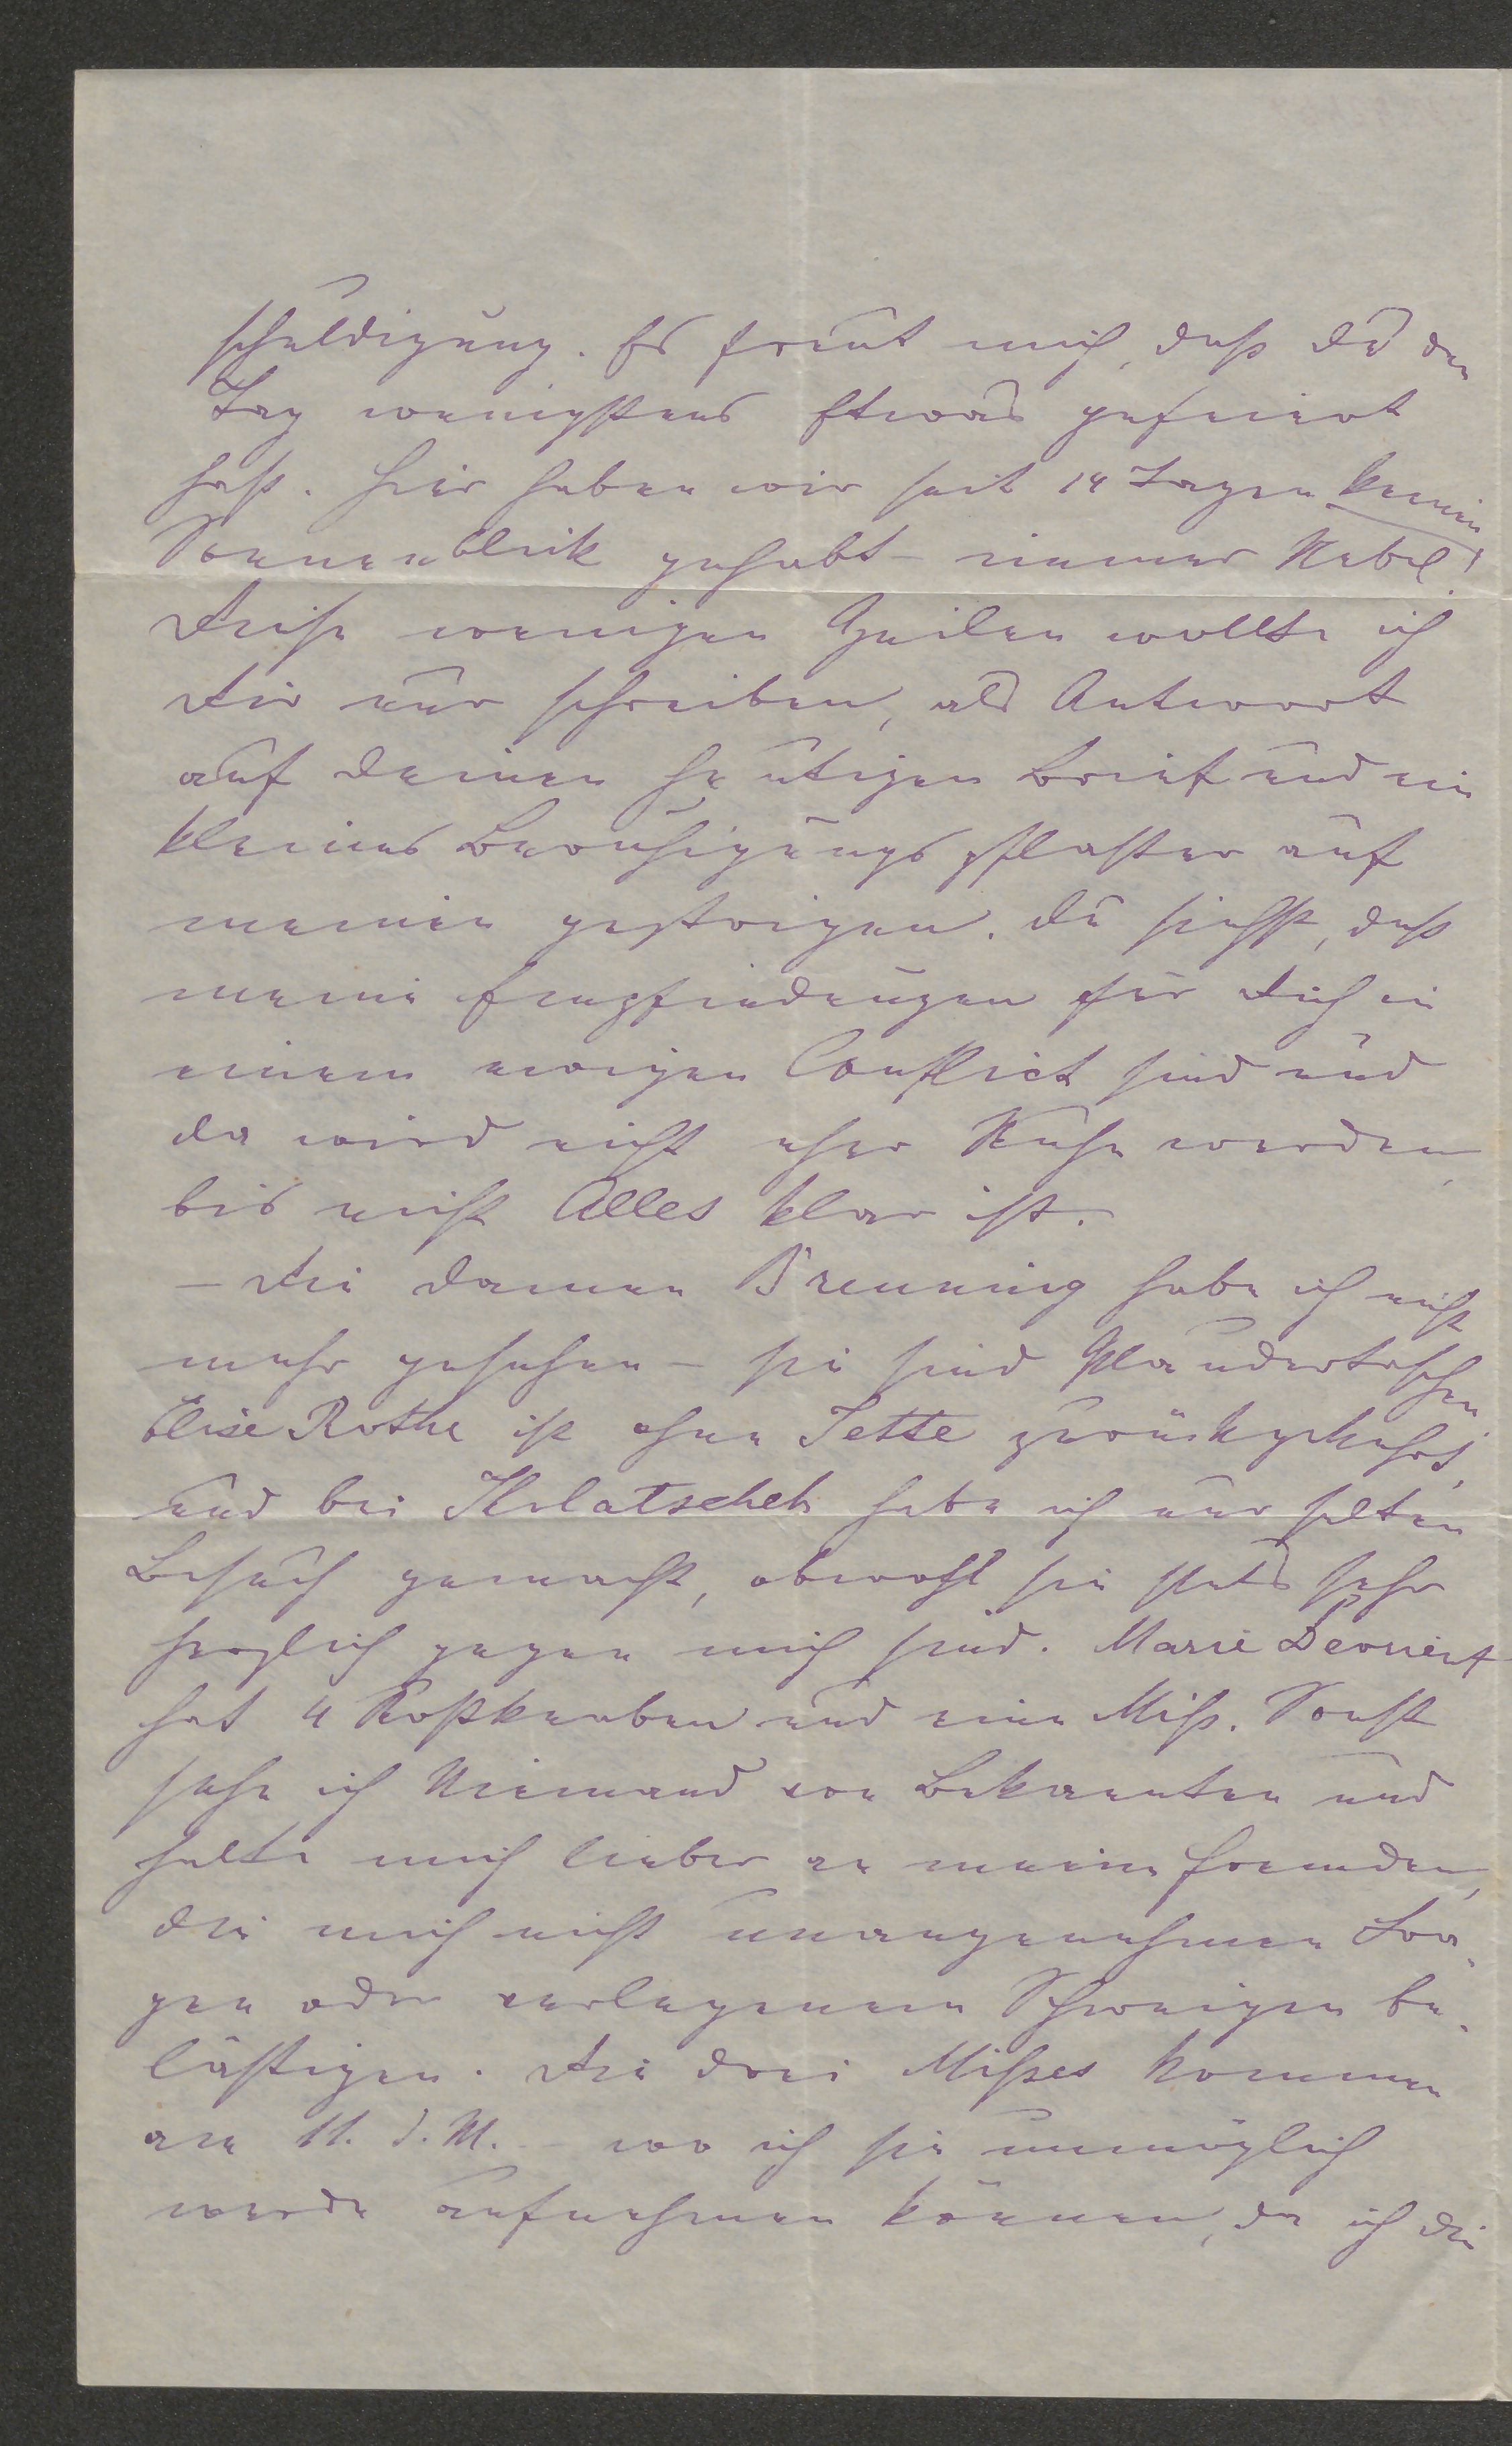 schuldigung. Es freut mich, daß Du den
Tag wenigstens Etwas gefeiert
hast. Hier haben wir seit 14 Tagen keinen
Sonnenblick gehabt – immer Nebel!
Diese wenigen Zeilen wollte ich
Dir nur schreiben, als Antwort
auf Deinen heutigen Brief und ein
kleines Beruhigungspflaster auf
meinen gestrigen. Du siehst, daß
meine Empfindungen für Dich in
einem ewigen Conflict sind und
da wird nicht eher Ruhe werden,
bis nicht Alles klar ist.
– Die Damen Breuning habe ich nicht
mehr gesehen – sie sind Plaudertaschen
Elise Rothe ist ohne Jette zurückgekehrt,
und bei Kolatschek habe ich nur selten
Besuch gemacht, obwohl sie stets sehr
herzlich gegen mich sind. Marie Devrient
hat 4 Kostknaben und eine Miß. Sonst
sehe ich Niemand von Bekannten und
halte mich lieber an meine Fremden,
die mich nicht unangenehmen Fra-
gen oder verlegenem Schweigen be-
lästigen. Die drei Mißes kommen
am 11. d. M. – wo ich sie unmöglich
werde aufnehmen können, da ich die